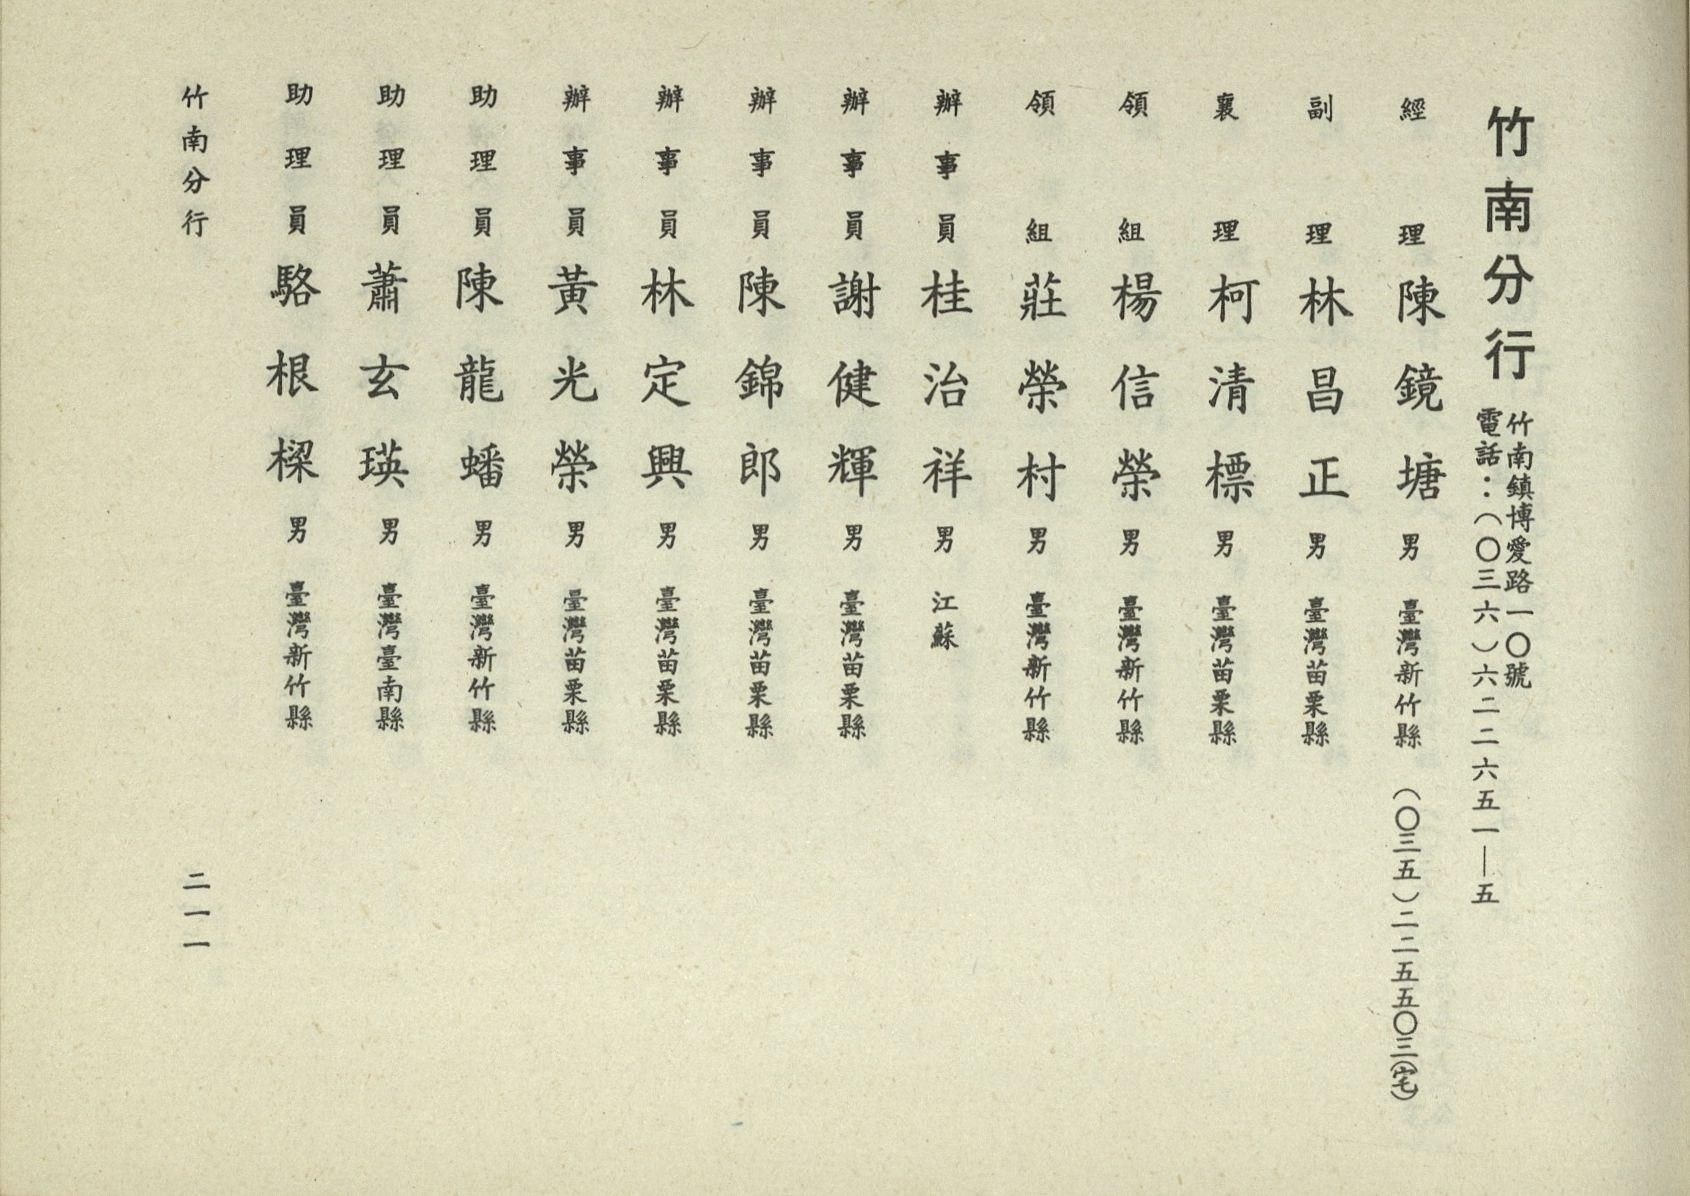 竹南分行
竹南鎮博愛路一〇號
電話：（〇三六）六二二六五一—五
經理 陳鏡塘 男 臺灣新竹縣 （〇三五）二二五五〇三(宅)
副理 林昌正 男 臺灣苗栗縣
襄理 柯清標 男 臺灣苗栗縣
領組 楊信榮 男 臺灣新竹縣
領組 莊榮村 男 臺灣新竹縣
辦事員 桂治祥 男 江蘇
辦事員 謝健輝 男 臺灣苗栗縣
辦事員 陳錦郎 男 臺灣苗栗縣
辦事員 林定興 男 臺灣苗栗縣
辦事員 黃光榮 男 臺灣苗栗縣
助理員 陳龍蟠 男 臺灣新竹縣
助理員 蕭玄瑛 男 臺灣臺南縣
助理員 駱根樑 男 臺灣新竹縣
竹南分行
二一一